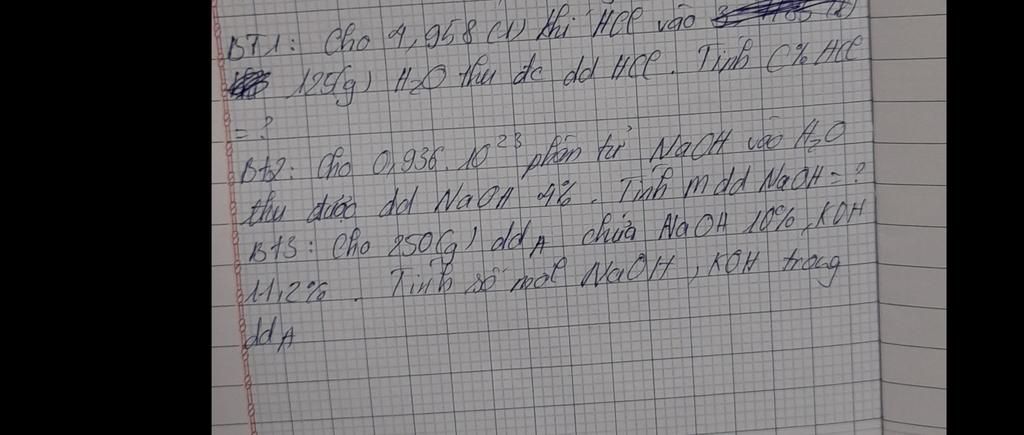 BT1: Cho 4,958 (l) khí HCl vào
125(g) H2O thu đc dd HCl. Tính C% HCl
= ?
Bt2: Cho 0,936.10^23 phân tử NaOH vào H2O
thu được dd NaOH 4%. Tính mdd NaOH = ?
Bt3: Cho 250(g) dd A chứa NaOH 10%, KOH
11,2%. Tính số mol NaOH, KOH trong
dd A